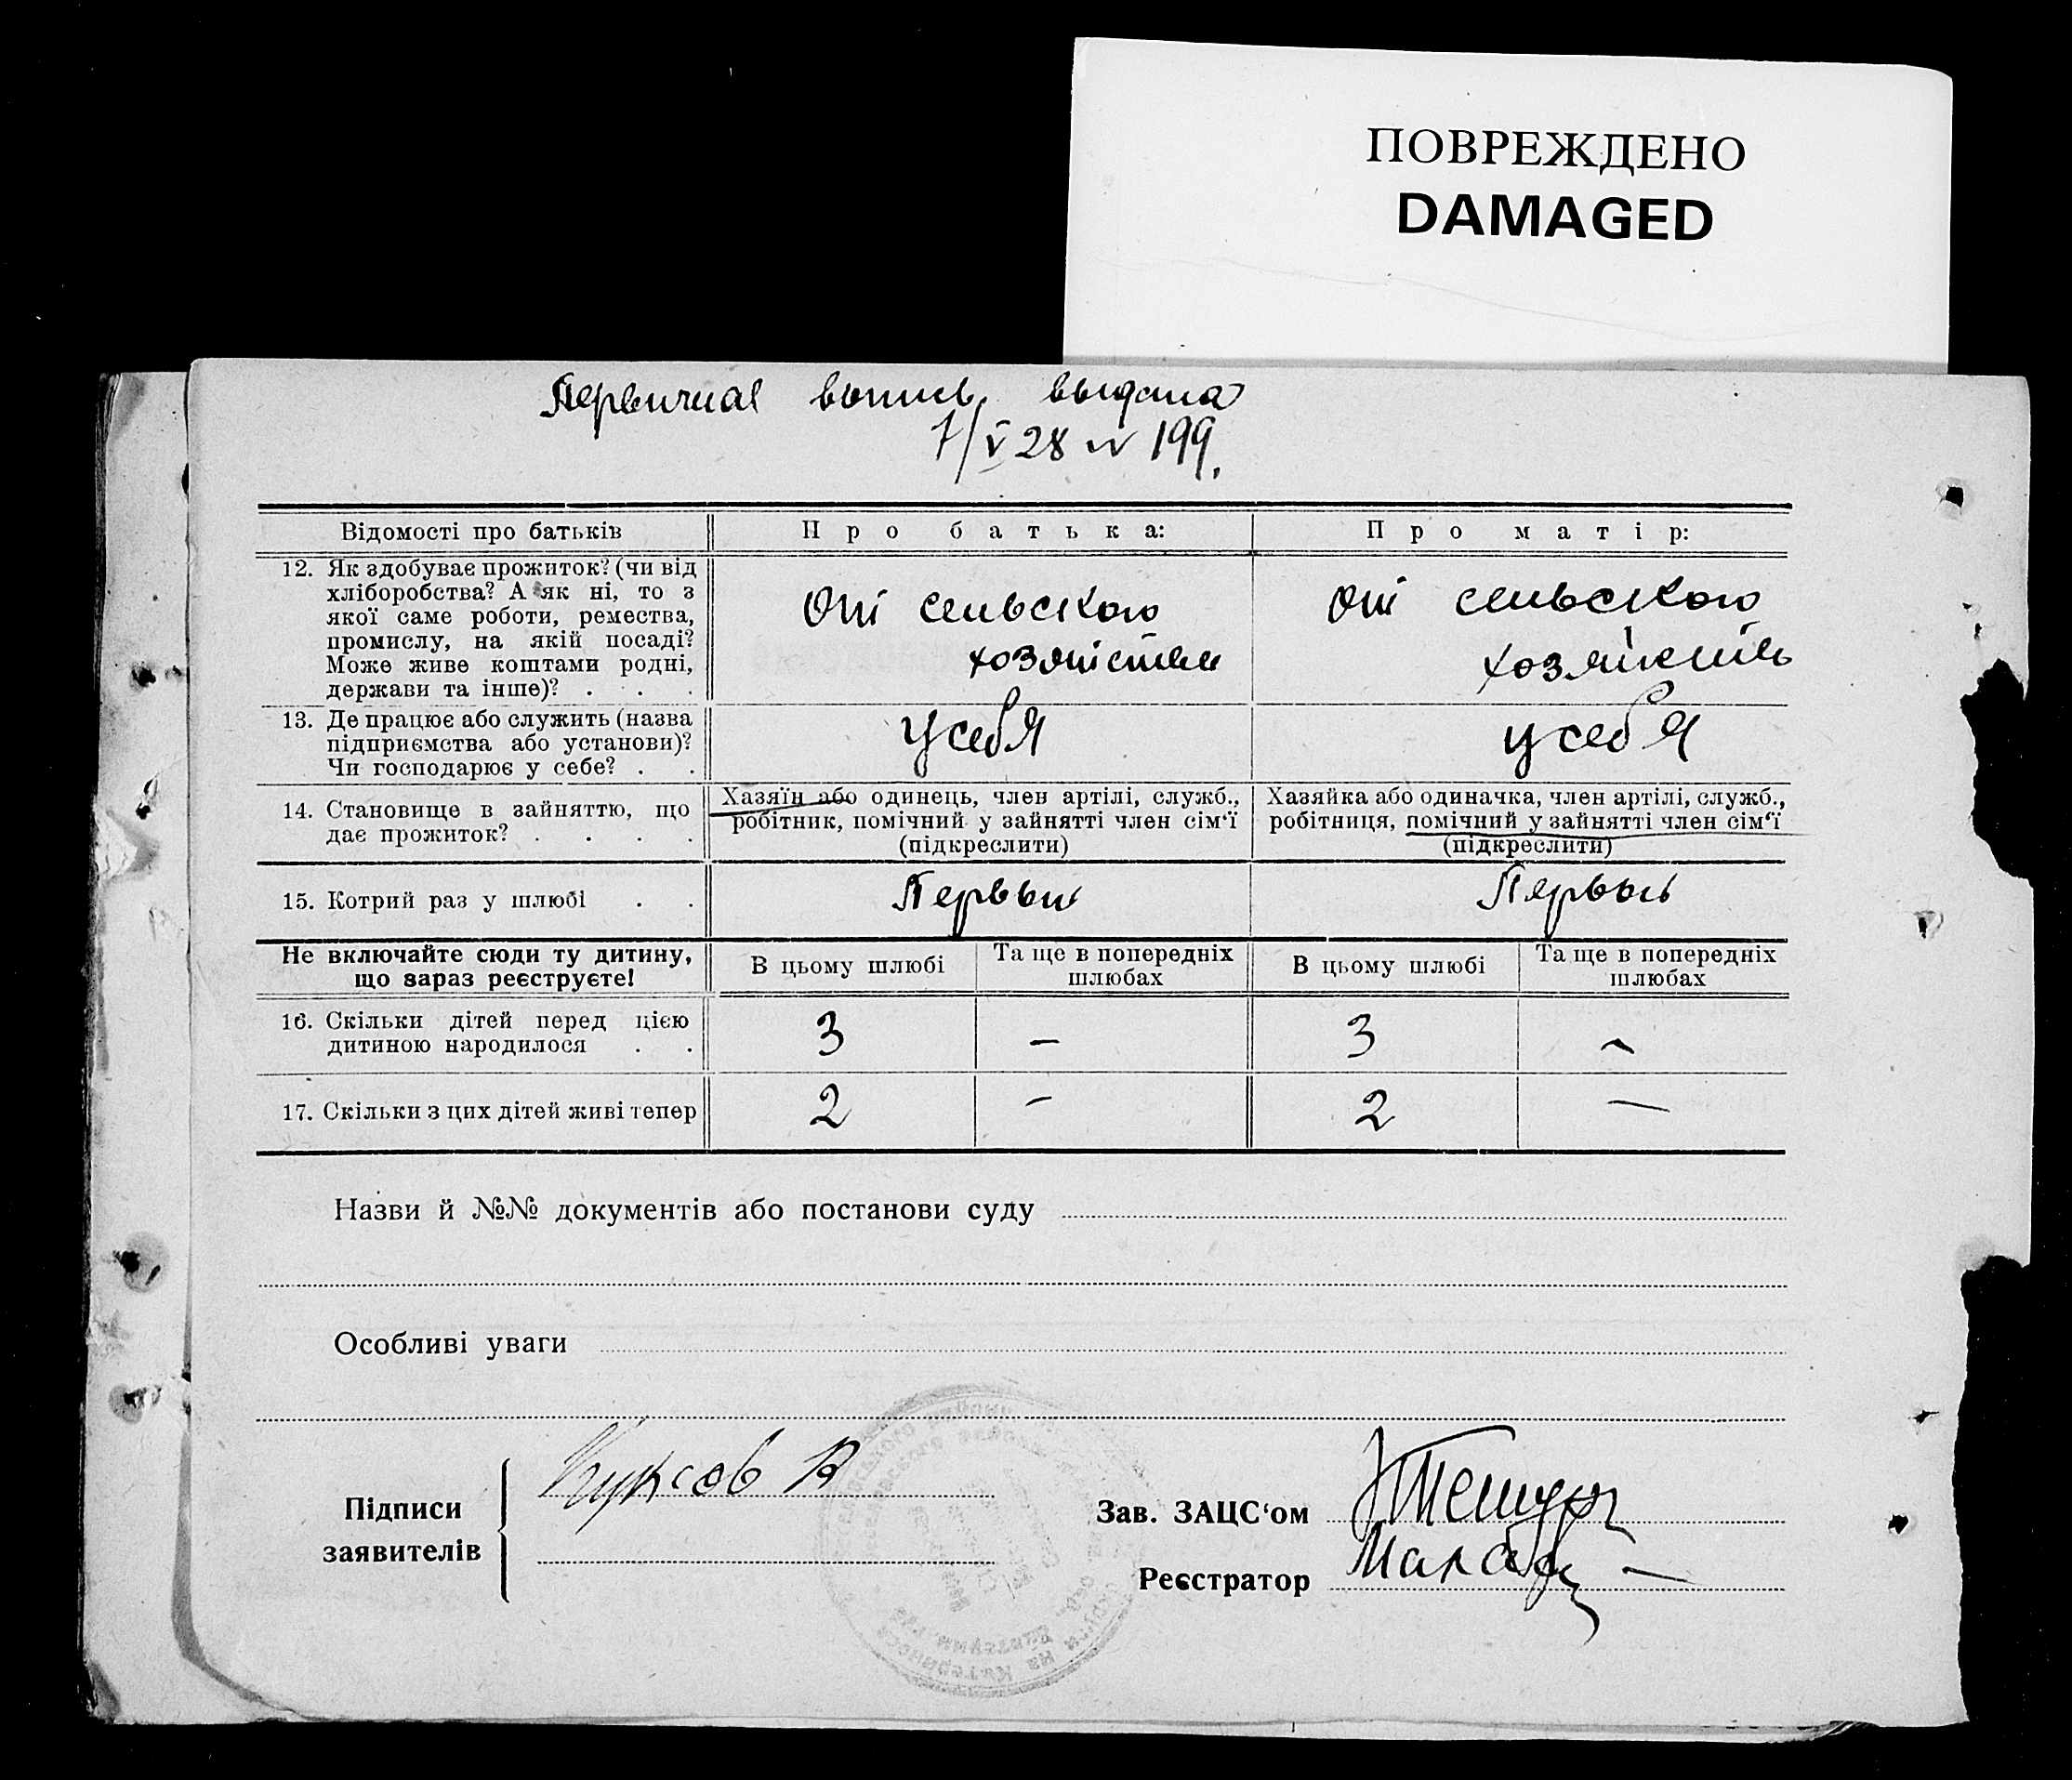 ПОВРЕЖДЕНО
DAMAGED
Первичная выпись выдана
7/V 28 N 199.
Відомості про батьків
Про батька:
Про матір:
12. Як здобуває прожиток? (чи від
хліборобства? А як ні, то з
якої саме роботи, ремества,
промислу, на якій посаді?
Може живе коштами родні,
держави та інше)? . . .
От сельского
хозяйства
От сельского
хозяйства
13. Де працює або служить (назва
підприємства або установи)?
Чи господарює у себе? . .
У себя
У себя
14. Становище в зайняттю, що
дає прожиток? . . . .
Хазяїн або одинець, член артілі, служб.,
робітник, помічний у зайнятті член сім‘ї
(підкреслити)
Хазяйка або одиначка, член артілі, служб.,
робітниця, помічний у зайнятті член сім‘ї
(підкреслити)
15. Котрий раз у шлюбі . .
Первый
Первый
Не включайте сюди ту дитину,
що зараз реєструєте!
В цьому шлюбі
Та ще в попередніх
шлюбах
В цьому шлюбі
Та ще в попередніх
шлюбах
16. Скільки дітей перед цією
дитиною народилося . .
3
–
3
–
17. Скільки з цих дітей живі тепер
2
–
2
—
Назви й №№ документів або постанови суду
Особливі уваги
Підписи
заявителів
Зав. ЗАЦС‘ом
Реєстратор